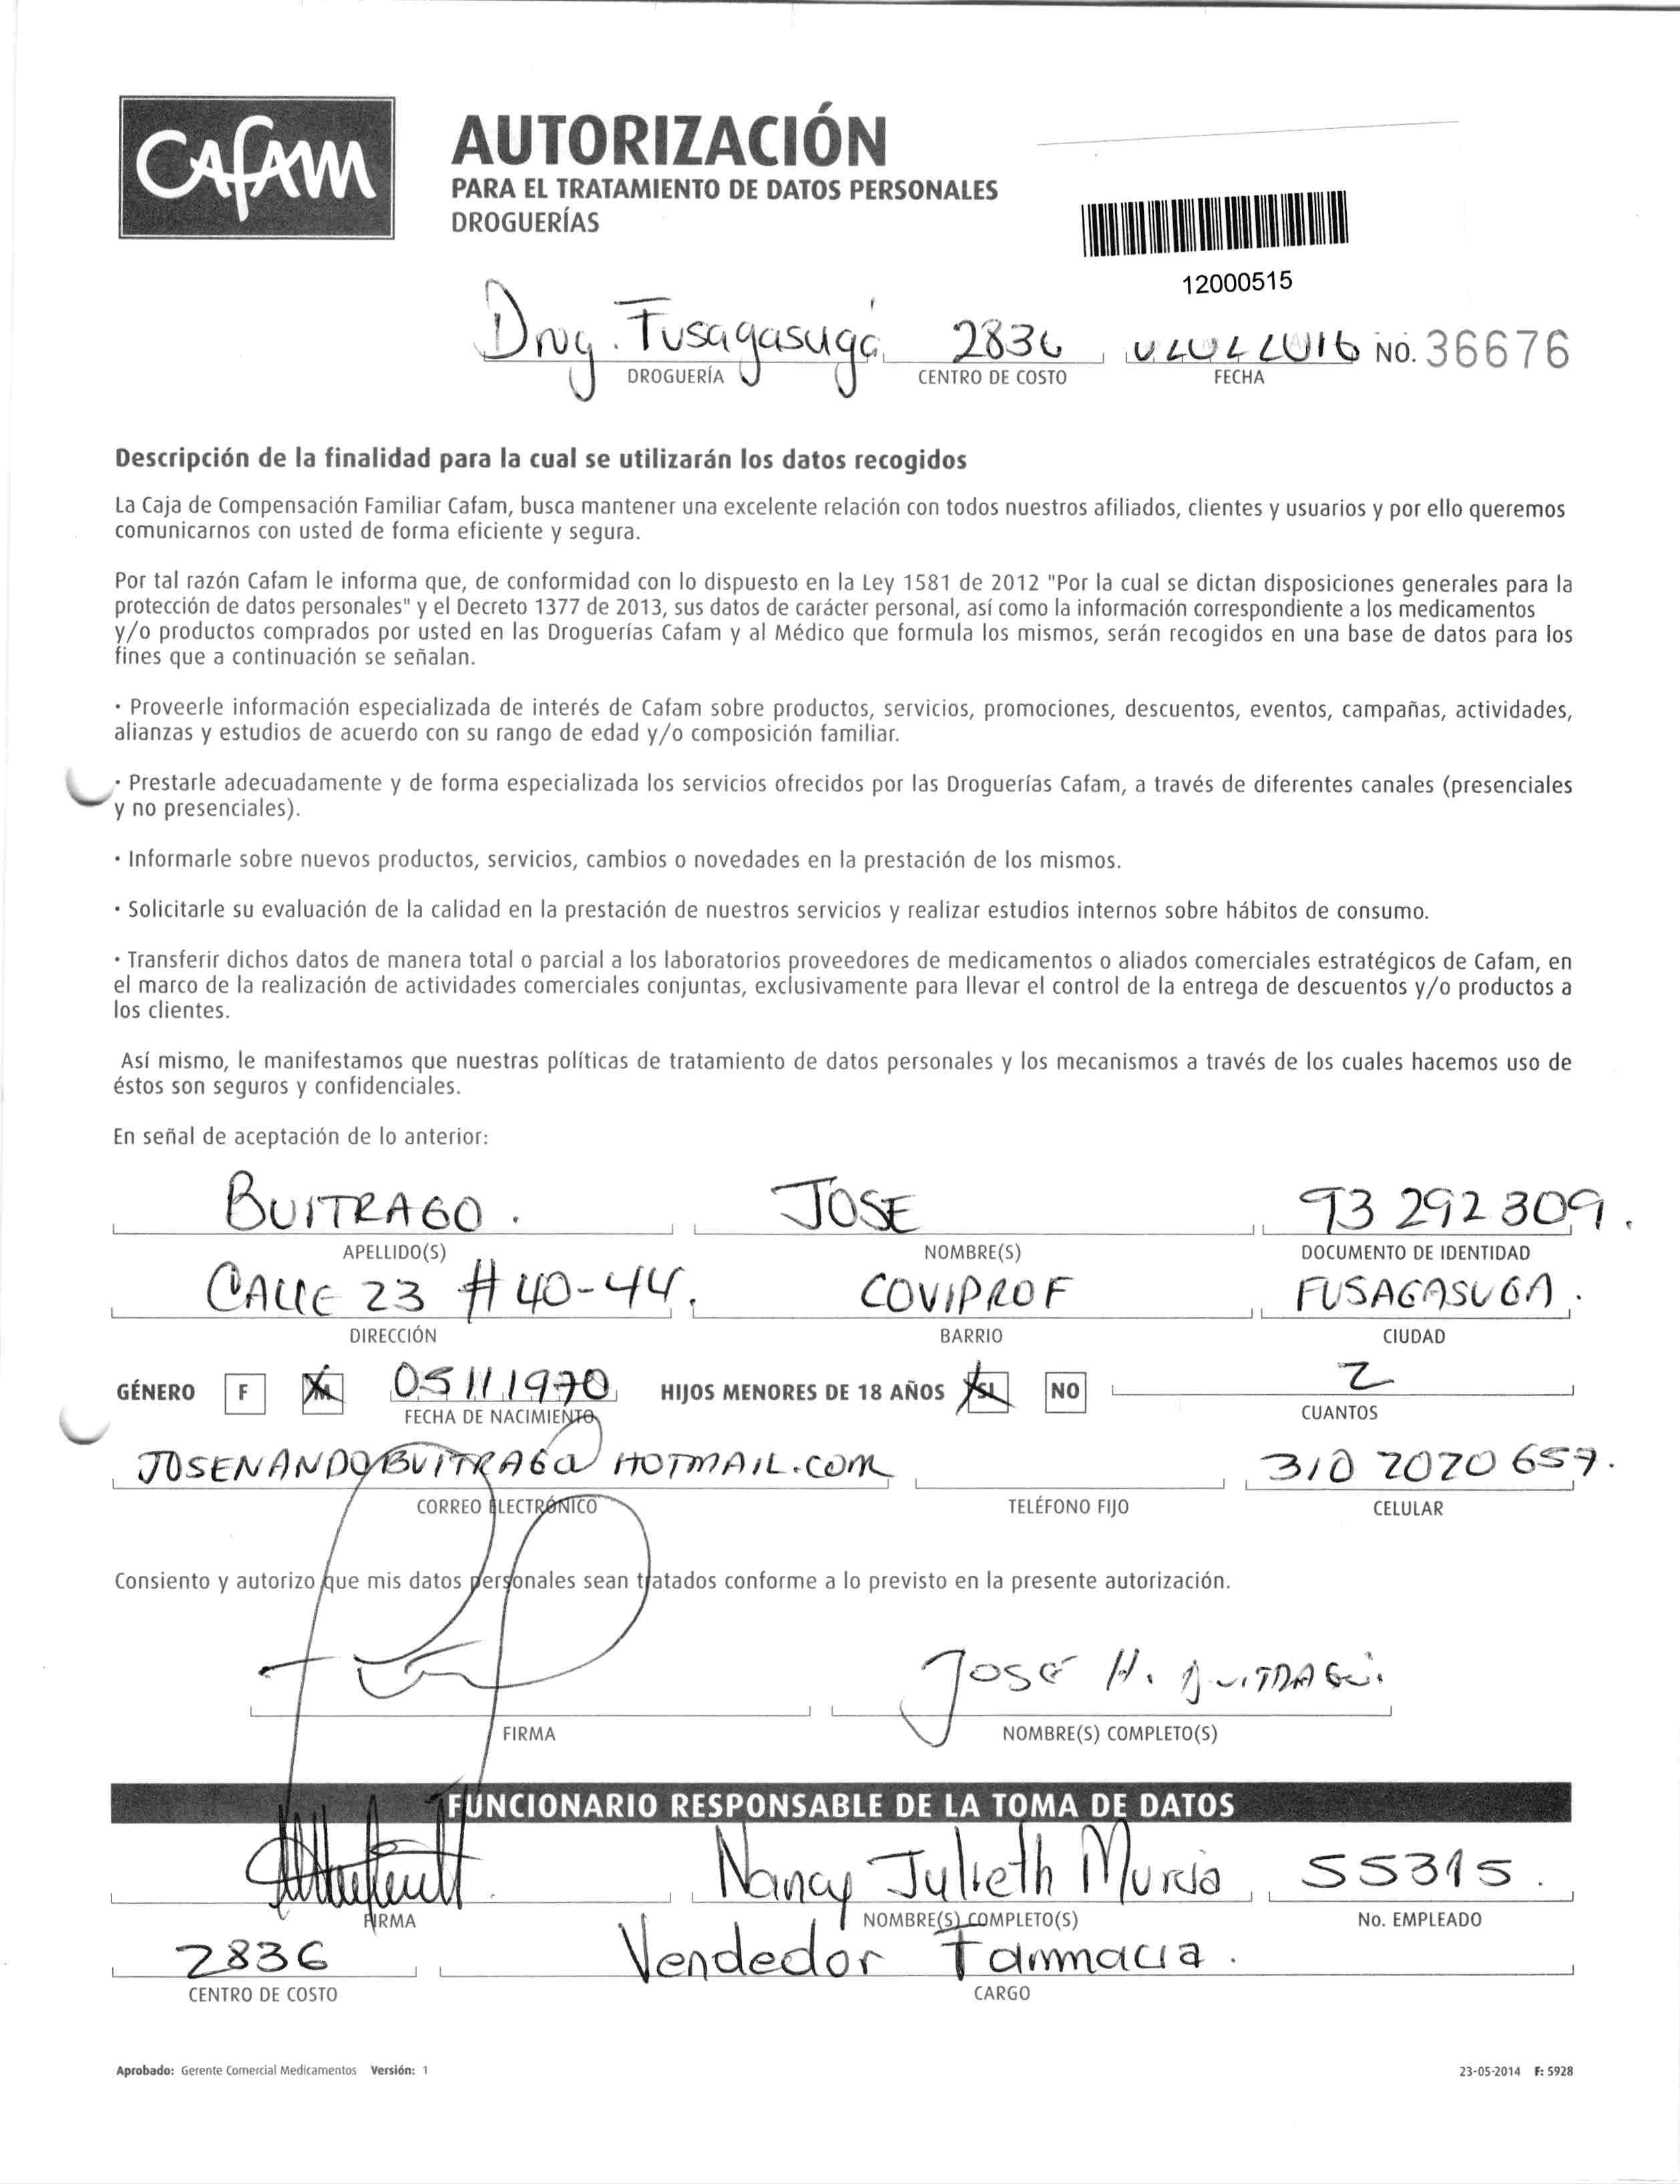 CAFAM
AUTORIZACIÓN
PARA EL TRATAMIENTO DE DATOS PERSONALES
DROGUERÍAS
12000515
Drog. Fusagasugá 2836 2016 NO. 36676
DROGUERÍA CENTRO DE COSTO FECHA
Descripción de la finalidad para la cual se utilizarán los datos recogidos
La Caja de Compensación Familiar Cafam, busca mantener una excelente relación con todos nuestros afiliados, clientes y usuarios y por ello queremos
comunicarnos con usted de forma eficiente y segura.
Por tal razón Cafam le informa que, de conformidad con lo dispuesto en la Ley 1581 de 2012 "Por la cual se dictan disposiciones generales para la
protección de datos personales" y el Decreto 1377 de 2013, sus datos de carácter personal, así como la información correspondiente a los medicamentos
y/o productos comprados por usted en las Droguerías Cafam y al Médico que formula los mismos, serán recogidos en una base de datos para los
fines que a continuación se señalan.
· Proveerle información especializada de interés de Cafam sobre productos, servicios, promociones, descuentos, eventos, campañas, actividades,
alianzas y estudios de acuerdo con su rango de edad y/o composición familiar.
· Prestarle adecuadamente y de forma especializada los servicios ofrecidos por las Droguerías Cafam, a través de diferentes canales (presenciales
y no presenciales).
· Informarle sobre nuevos productos, servicios, cambios o novedades en la prestación de los mismos.
· Solicitarle su evaluación de la calidad en la prestación de nuestros servicios y realizar estudios internos sobre hábitos de consumo.
· Transferir dichos datos de manera total o parcial a los laboratorios proveedores de medicamentos o aliados comerciales estratégicos de Cafam, en
el marco de la realización de actividades comerciales conjuntas, exclusivamente para llevar el control de la entrega de descuentos y/o productos a
los clientes.
Así mismo, le manifestamos que nuestras políticas de tratamiento de datos personales y los mecanismos a través de los cuales hacemos uso de
éstos son seguros y confidenciales.
En señal de aceptación de lo anterior:
BUITRAGO. JOSE 93 292 309.
APELLIDO(S) NOMBRE(S) DOCUMENTO DE IDENTIDAD
CALLE 23 # 40-44. COVIPROF FUSAGASUGA.
DIRECCIÓN BARRIO CIUDAD
GÉNERO F M 05 11 1970 HIJOS MENORES DE 18 AÑOS SI NO 2
FECHA DE NACIMIENTO CUANTOS
JOSENANDOBUITRAGO HOTMAIL.COM 310 2020 657.
CORREO ELECTRÓNICO TELÉFONO FIJO CELULAR
Consiento y autorizo que mis datos personales sean tratados conforme a lo previsto en la presente autorización.
JOSE H. BUITRAGO.
FIRMA NOMBRE(S) COMPLETO(S)
FUNCIONARIO RESPONSABLE DE LA TOMA DE DATOS
Nancy Julieth Murcia 55315.
FIRMA NOMBRE(S) COMPLETO(S) No. EMPLEADO
2836 Vendedor Farmacia.
CENTRO DE COSTO CARGO
Aprobado: Gerente Comercial Medicamentos Versión: 1 23-05-2014 F: 5928